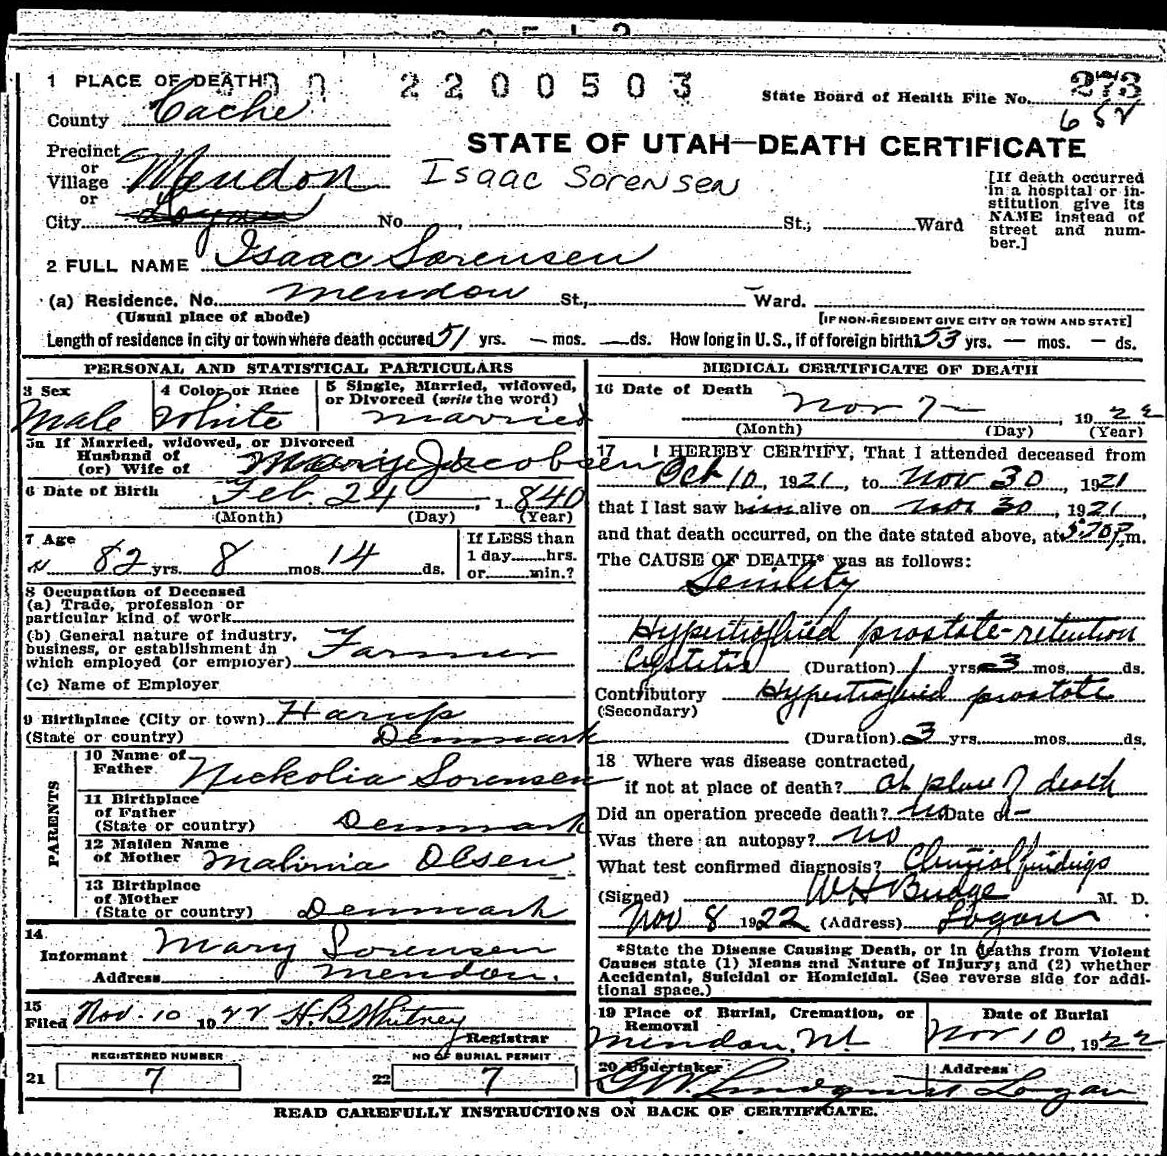 1 PLACE OF DEATH 2200503 273
State Board of Health File No.
County Cache 652
STATE OF UTAH—DEATH CERTIFICATE
Precinct
or
Village Mendon Isaac Sorensen
or
City Logan No. St.; Ward
[If death occurred
in a hospital or in-
stitution give its
NAME instead of
street and num-
ber.]
2 FULL NAME Isaac Sorensen
(a) Residence. No. Mendon St., Ward.
(Usual place of abode) [IF NON-RESIDENT GIVE CITY OR TOWN AND STATE]
Length of residence in city or town where death occured 51 yrs. — mos. — ds. How long in U.S., if of foreign birth? 53 yrs. — mos. — ds.
PERSONAL AND STATISTICAL PARTICULARS
3 Sex 4 Color or Race 5 Single, Married, widowed,
or Divorced (write the word)
Male White married
5a If Married, widowed, or Divorced
Husband of
(or) Wife of Mary Jacobsen
6 Date of Birth Feb. 24, 1840
(Month) (Day) (Year)
7 Age If LESS than
82 yrs. 8 mos. 14 ds. 1 day......hrs.
or......min.?
8 Occupation of Deceased
(a) Trade, profession or
particular kind of work
(b) General nature of industry,
business, or establishment in
which employed (or employer) Farmer
(c) Name of Employer
9 Birthplace (City or town) Harup
(State or country) Denmark
PARENTS
10 Name of
Father Nickolia Sorensen
11 Birthplace
of Father
(State or country) Denmark
12 Maiden Name
of Mother Malinia Olsen
13 Birthplace
of Mother
(State or country) Denmark
14
Informant Mary Sorensen
Address Mendon.
15
Filed Nov. 10 1922 H.B. Whitney
Registrar
REGISTERED NUMBER NO OF BURIAL PERMIT
21 7 22 7
MEDICAL CERTIFICATE OF DEATH
16 Date of Death
Nov 7— 1922
(Month) (Day) (Year)
17 I HEREBY CERTIFY, That I attended deceased from
Oct 10, 1921, to Nov 30, 1921
that I last saw him alive on Nov 30, 1921,
and that death occurred, on the date stated above, at 5:20 P.m.
The CAUSE OF DEATH* was as follows:
Senility
Hypertrophied prostate-retention
Cystitis (Duration) 1 yrs. 3 mos. ds.
Contributory Hypertrophied prostate
(Secondary)
(Duration) 3 yrs. mos. ds.
18 Where was disease contracted
if not at place of death? at place of death
Did an operation precede death? no Date of —
Was there an autopsy? no
What test confirmed diagnosis? Clinical findings
(Signed) W H Budge M. D.
Nov 8 1922 (Address) Logan
*State the Disease Causing Death, or in deaths from Violent
Causes state (1) Means and Nature of Injury; and (2) whether
Accidental, Suicidal or Homicidal. (See reverse side for addi-
tional space.)
19 Place of Burial, Cremation, or
Removal Date of Burial
Mendon, Ut Nov 10, 1922
20 Undertaker Address
Lindquist Logan
READ CAREFULLY INSTRUCTIONS ON BACK OF CERTIFICATE.